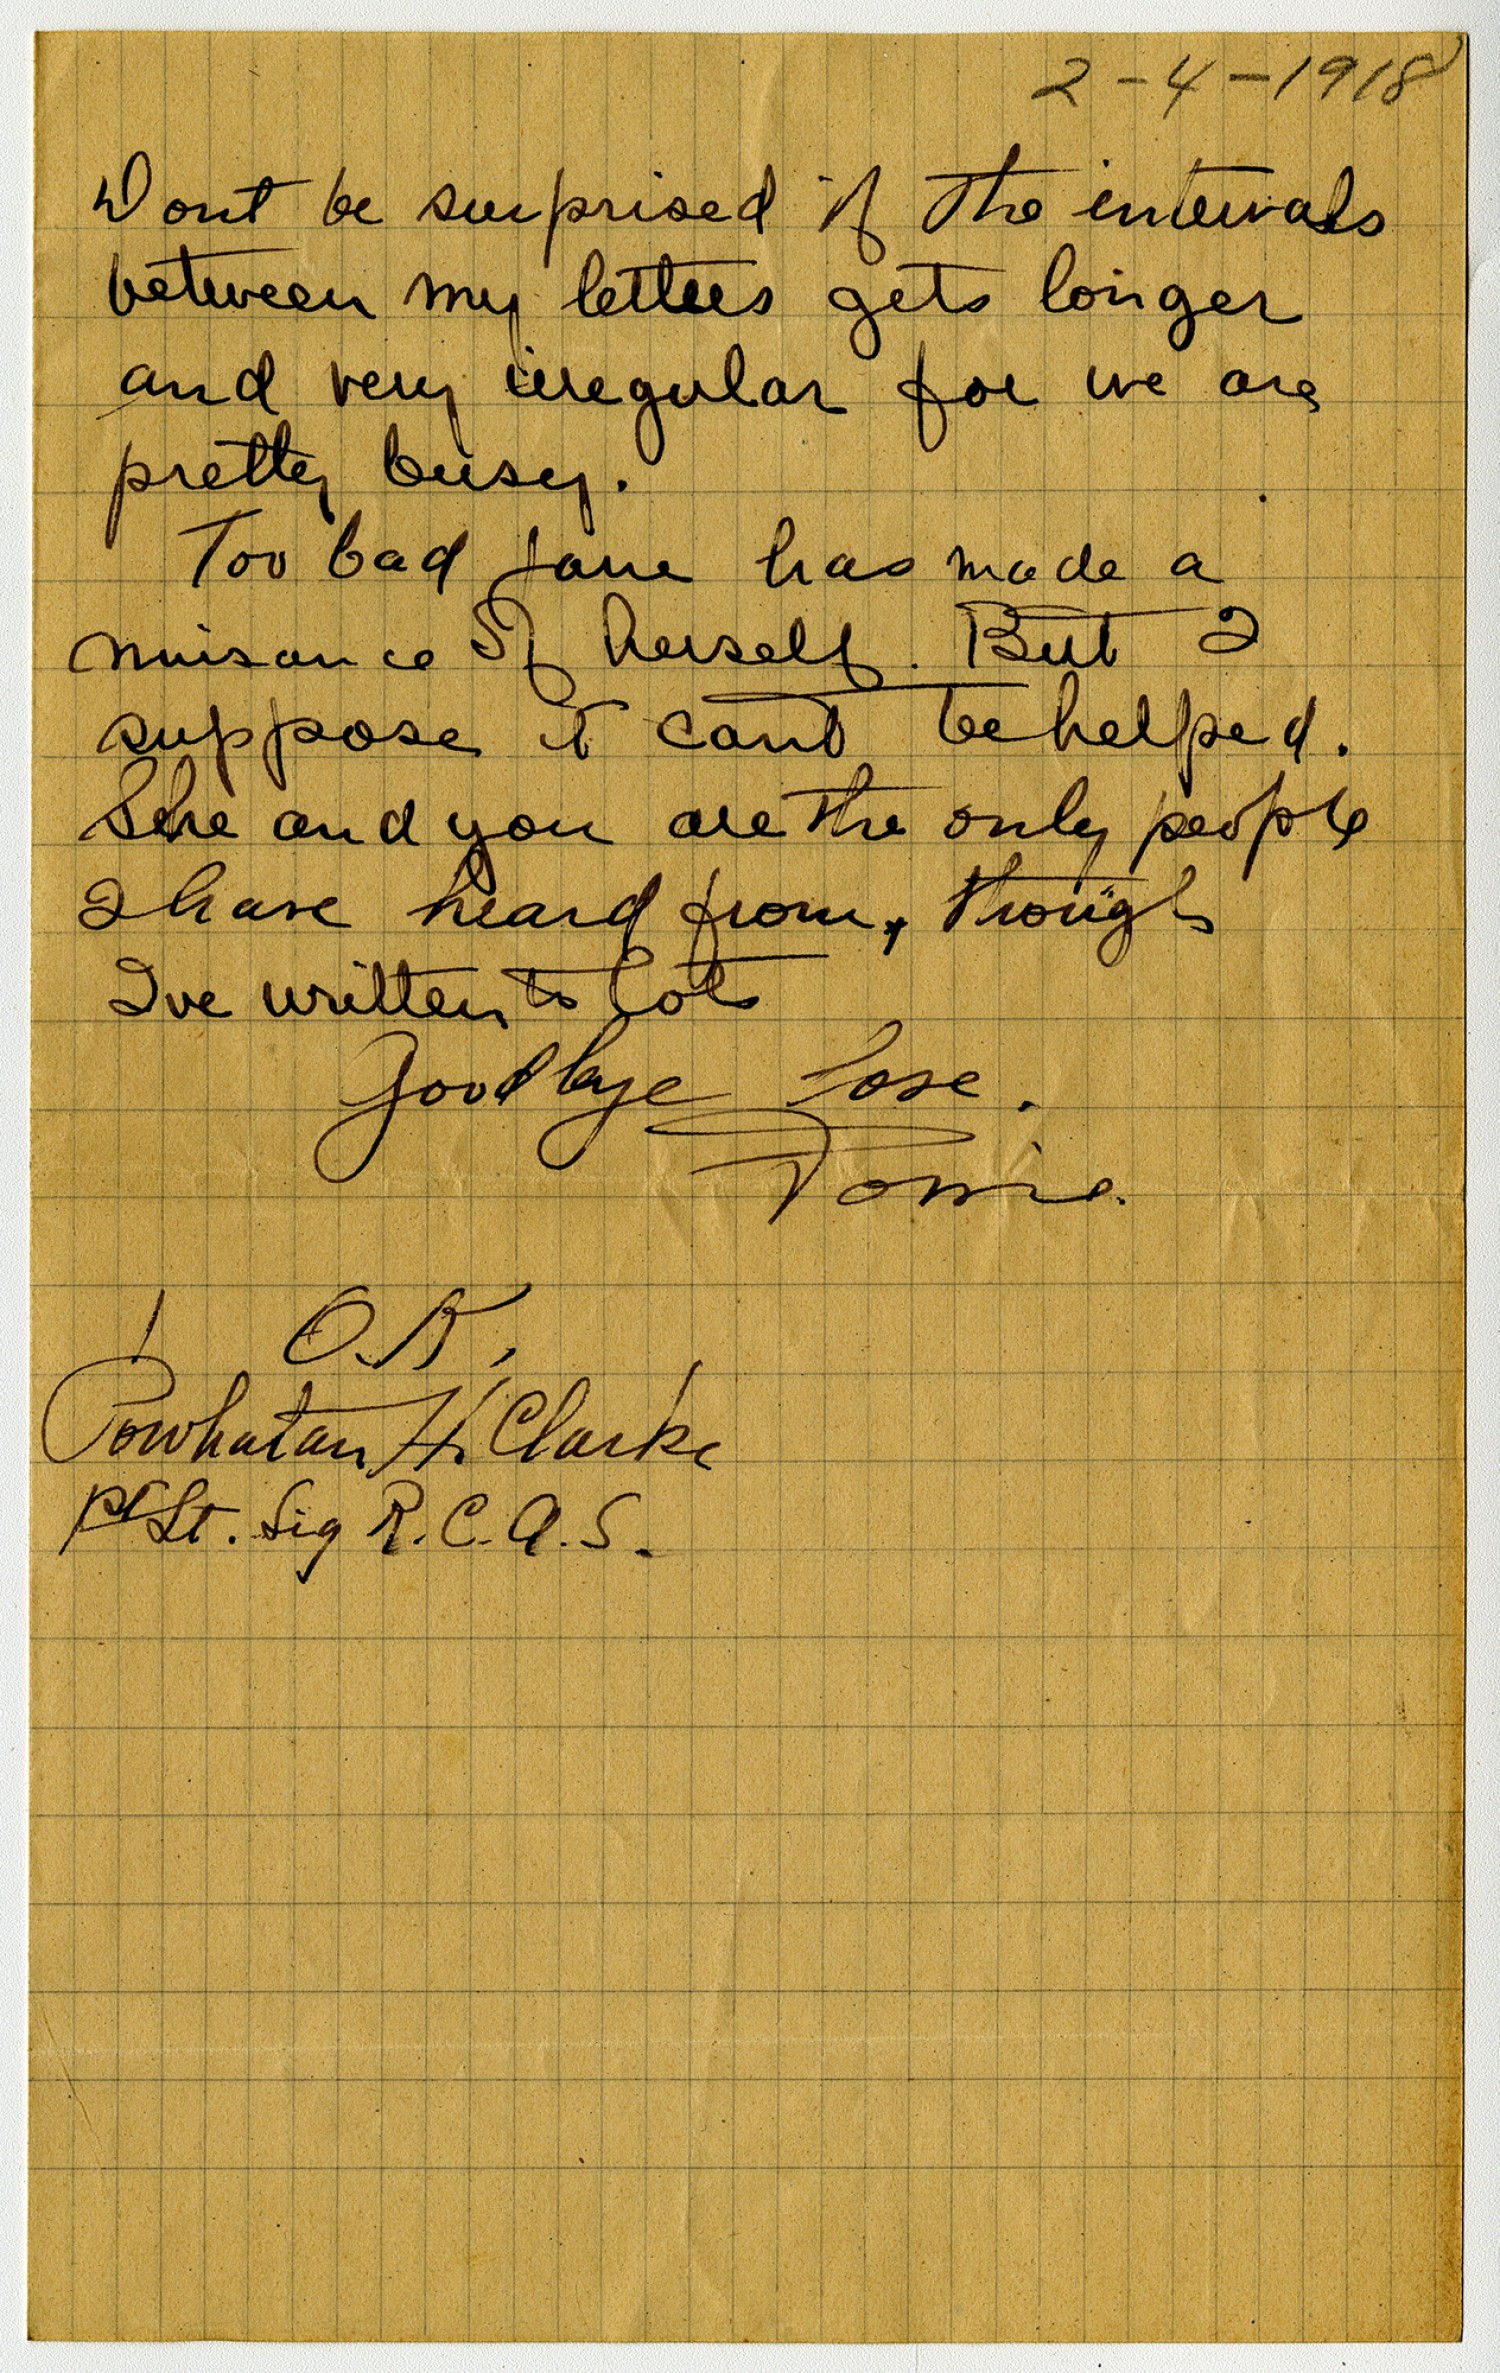 2-4-1918
Dont be surprised if the intervals
between my letters gets longer
and very irregular for we are
pretty busy.
Too bad Jane has made a
nuisance of herself. But I
suppose it cant be helped.
She and you are the only people
I have heard from, though
I've written to lots
Goodbye Love.
Tomie.
O.K.,
Powhatan H. Clarke
1st Lt. Sig R.C.A.S.